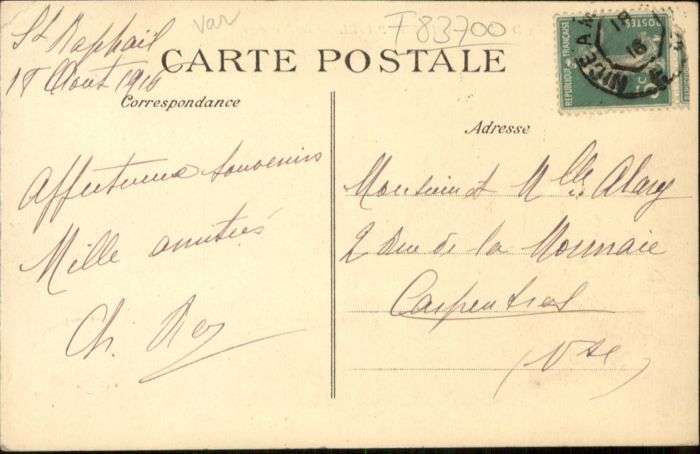 St Raphaël
18 Août 1916
Var
F83700
CARTE POSTALE
Correspondance
Affectueux souvenirs
Mille amitiés
Ch. Roy
REPUBLIQUE FRANÇAISE
POSTES
5c
NICE A
18
16
Adresse
Monsieur et Mlle Alary
2 Rue de la Monnaie
Carpentras
(Vse)